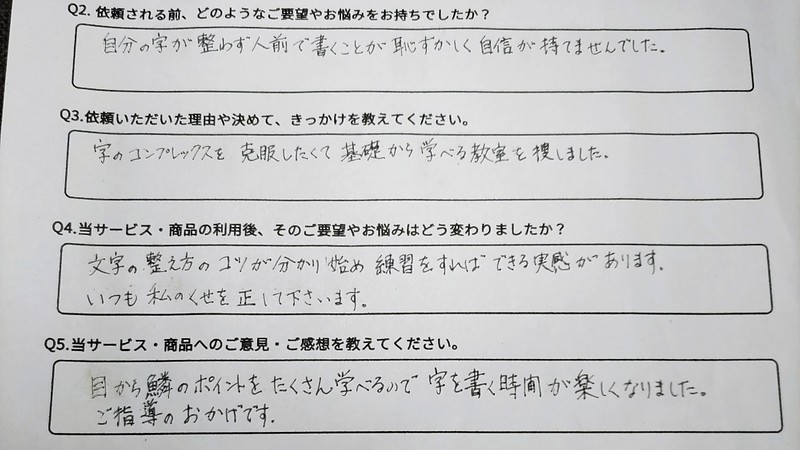 Q2. 依頼される前、どのようなご要望やお悩みをお持ちでしたか？
自分の字が整わず人前で書くことが恥ずかしく自信が持てませんでした。
Q3.依頼いただいた理由や決めて、きっかけを教えてください。
字のコンプレックスを克服したくて基礎から学べる教室を捜しました。
Q4.当サービス・商品の利用後、そのご要望やお悩みはどう変わりましたか？
文字の整え方のコツが分かり始め練習をすればできる実感があります。
いつも私のくせを正して下さいます。
Q5.当サービス・商品へのご意見・ご感想を教えてください。
目から鱗のポイントをたくさん学べるので字を書く時間が楽しくなりました。
ご指導のおかげです。